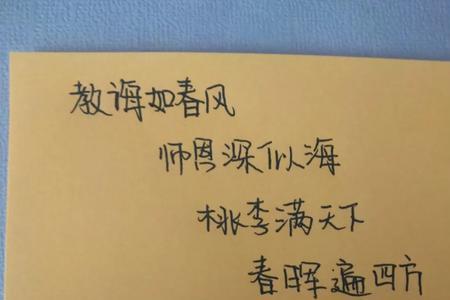 教诲如春风
师恩深似海
桃李满天下
春晖遍四方